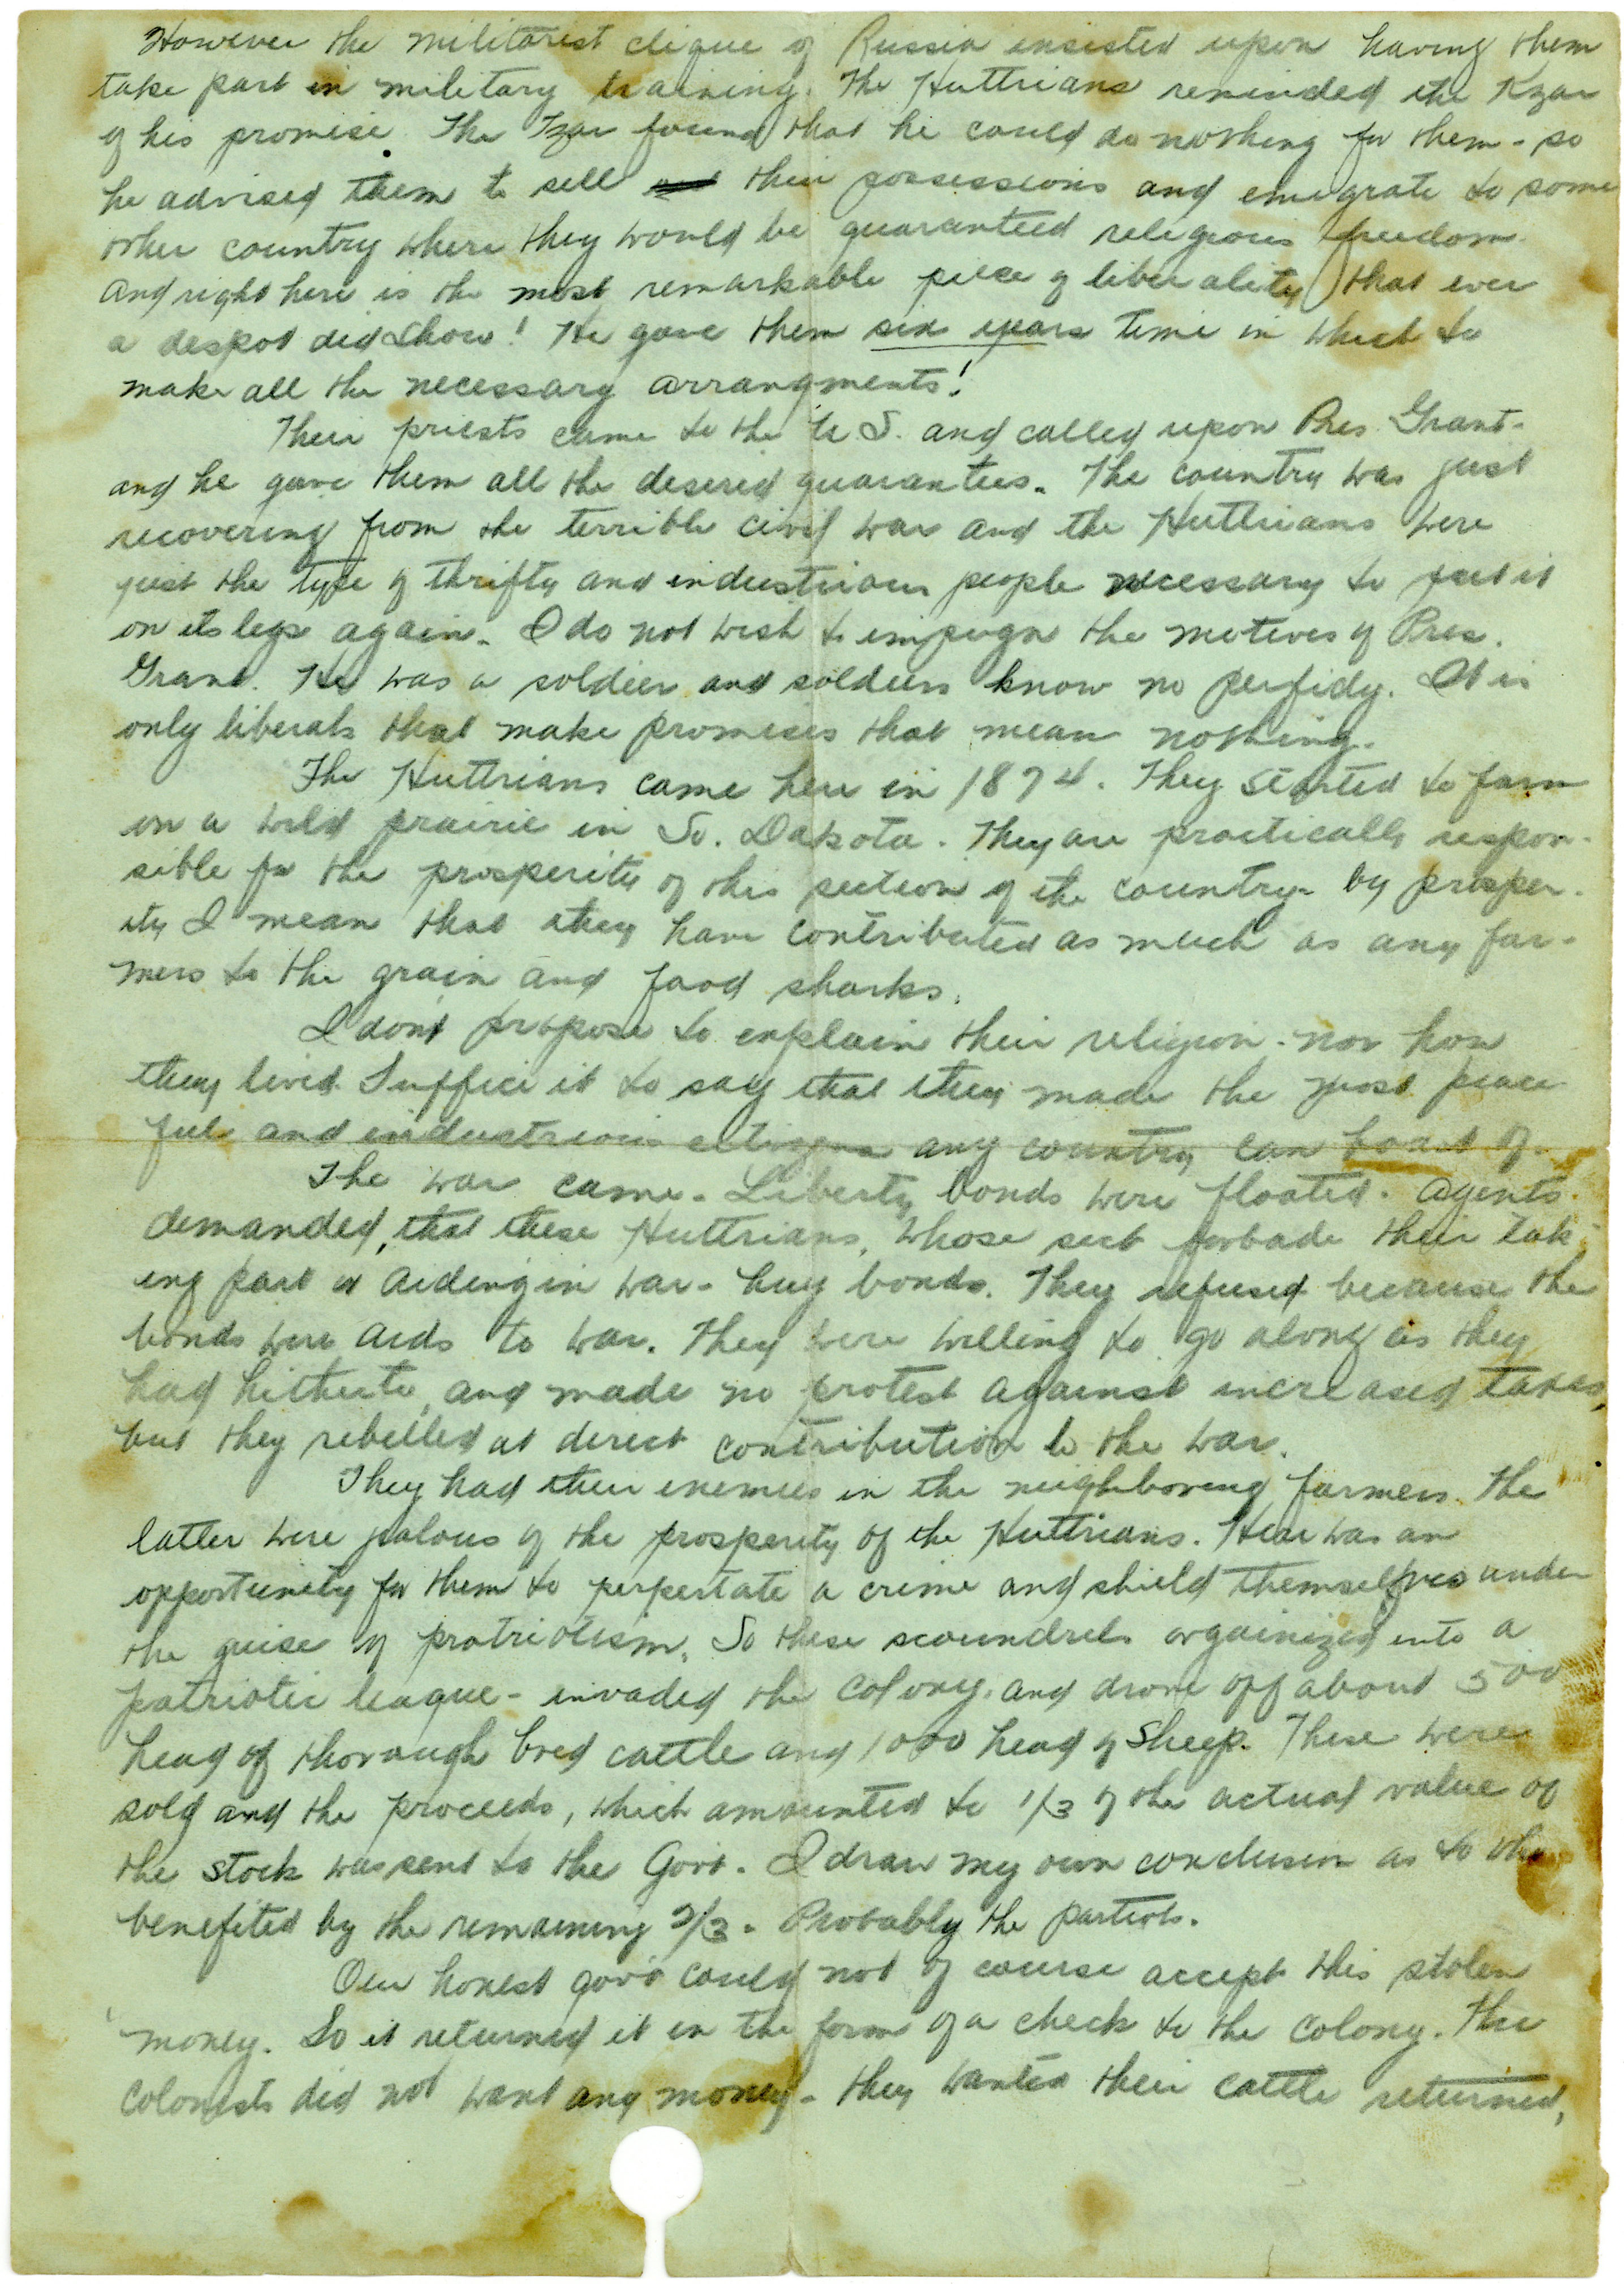 However the militarist clique of Russia insisted upon having them
take part in military training. The Huttrians reminded the Kzar
of his promise. The Tzar found that he could do nothing for them - so
he advised them to sell their possessions and emigrate to some
other country where they would be guaranteed religious freedom.
And right here is the most remarkable piece of liberality that ever
a despot did show! He gave them six years time in which to
make all the necessary arrangments!
Their priests came to the U.S. and called upon Pres. Grant -
and he gave them all the desired guarantees. The country was just
recovering from the terrible civil war and the Huttrians were
just the type of thrifty and industrious people necessary to put it
on its legs again. I do not wish to impugn the motives of Pres.
Grant. He was a soldier and soldiers know no perfidy. It is
only liberals that make promises that mean nothing.
The Huttrians came here in 1874. They started to farm
on a wild prairie in So. Dakota. They are practically respon-
sible for the prosperity of this section of the country - by prosper-
ity I mean that they have contributed as much as any far-
mers to the grain and food sharks.
I don't propose to explain their religion - nor how
they lived. Suffice it to say that they made the most peace
ful and industrious citizens any country can boast of.
The war came - Liberty bonds were floated. Agents
demanded, that these Huttrians, whose sect forbade their tak-
ing part or aiding in war - buy bonds. They refused because the
bonds were aids to war. They were willing to go along as they
had hitherto, and made no protest against increased taxes,
but they rebelled at direct contribution to the war.
They had their enemies in the neighboring farmers. The
latter were jealous of the prosperity of the Huttrians. Here was an
opportunity for them to perpertate a crime and shield themselves under
the guise of protriotism. So these scoundrels orgainized into a
patriotic league - invaded the colony, and drove off about 500
head of thorough bred cattle and 1000 head of sheep. These were
sold and the proceeds, which amounted to 1/3 of the actual value of
the stock was sent to the Govt. I draw my own conclusion as to who
benefited by the remaining 2/3 - Probably the partiots.
Our honest gov't could not of course accept this stolen
money. So it returned it in the form of a check to the colony. The
colonists did not want any money - they wanted their cattle returned,